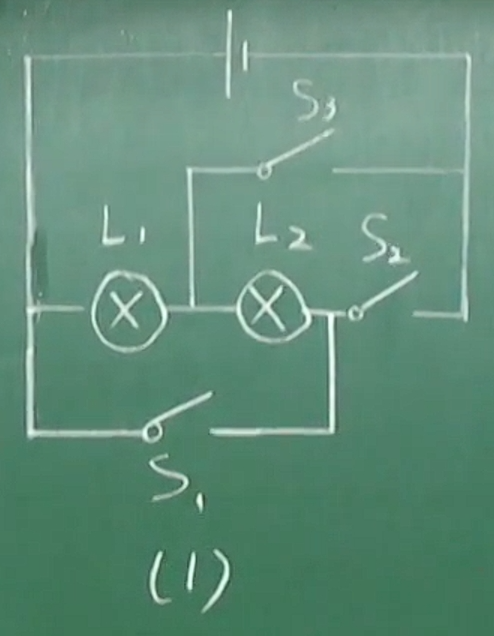 S₃
L₁ L₂ S₂
S₁
(1)